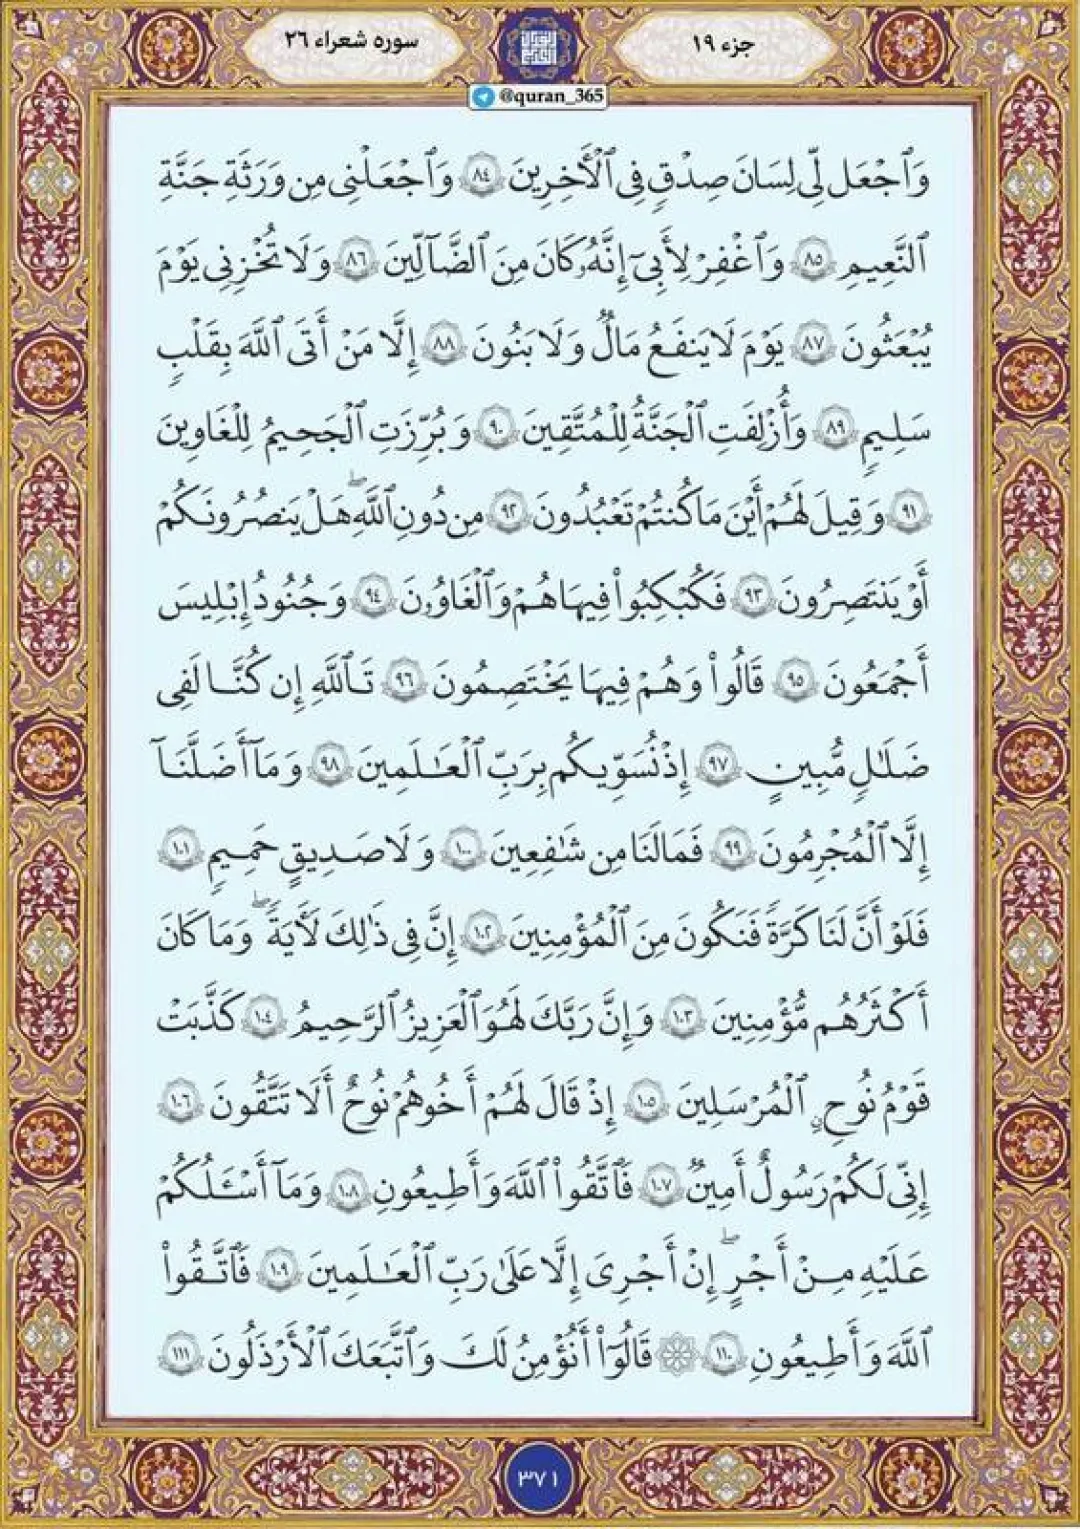 سوره شعراء ٢٦
جزء ١٩
@quran_365
وَٱجْعَل لِّى لِسَانَ صِدْقٍ فِى ٱلْأَخِرِينَ ٨٤ وَٱجْعَلْنِى مِن وَرَثَةِ جَنَّةِ
ٱلنَّعِيمِ ٨٥ وَٱغْفِرْ لِأَبِىٓ إِنَّهُۥ كَانَ مِنَ ٱلضَّآلِّينَ ٨٦ وَلَا تُخْزِنِى يَوْمَ
يُبْعَثُونَ ٨٧ يَوْمَ لَا يَنفَعُ مَالٌ وَلَا بَنُونَ ٨٨ إِلَّا مَنْ أَتَى ٱللَّهَ بِقَلْبٍ
سَلِيمٍ ٨٩ وَأُزْلِفَتِ ٱلْجَنَّةُ لِلْمُتَّقِينَ ٩٠ وَبُرِّزَتِ ٱلْجَحِيمُ لِلْغَاوِينَ
٩١ وَقِيلَ لَهُمْ أَيْنَ مَا كُنتُمْ تَعْبُدُونَ ٩٢ مِن دُونِ ٱللَّهِ ۖ هَلْ يَنصُرُونَكُمْ
أَوْ يَنتَصِرُونَ ٩٣ فَكُبْكِبُوا۟ فِيهَا هُمْ وَٱلْغَاوُۥنَ ٩٤ وَجُنُودُ إِبْلِيسَ
أَجْمَعُونَ ٩٥ قَالُوا۟ وَهُمْ فِيهَا يَخْتَصِمُونَ ٩٦ تَٱللَّهِ إِن كُنَّا لَفِى
ضَلَـٰلٍ مُّبِينٍ ٩٧ إِذْ نُسَوِّيكُم بِرَبِّ ٱلْعَـٰلَمِينَ ٩٨ وَمَآ أَضَلَّنَآ
إِلَّا ٱلْمُجْرِمُونَ ٩٩ فَمَا لَنَا مِن شَـٰفِعِينَ ١٠٠ وَلَا صَدِيقٍ حَمِيمٍ ١٠١
فَلَوْ أَنَّ لَنَا كَرَّةً فَنَكُونَ مِنَ ٱلْمُؤْمِنِينَ ١٠٢ إِنَّ فِى ذَٰلِكَ لَأَيَةً ۖ وَمَا كَانَ
أَكْثَرُهُم مُّؤْمِنِينَ ١٠٣ وَإِنَّ رَبَّكَ لَهُوَ ٱلْعَزِيزُ ٱلرَّحِيمُ ١٠٤ كَذَّبَتْ
قَوْمُ نُوحٍ ٱلْمُرْسَلِينَ ١٠٥ إِذْ قَالَ لَهُمْ أَخُوهُمْ نُوحٌ أَلَا تَتَّقُونَ ١٠٦
إِنِّى لَكُمْ رَسُولٌ أَمِينٌ ١٠٧ فَٱتَّقُوا۟ ٱللَّهَ وَأَطِيعُونِ ١٠٨ وَمَآ أَسْـَٔلُكُمْ
عَلَيْهِ مِنْ أَجْرٍ ۖ إِنْ أَجْرِىَ إِلَّا عَلَىٰ رَبِّ ٱلْعَـٰلَمِينَ ١٠٩ فَٱتَّقُوا۟
ٱللَّهَ وَأَطِيعُونِ ١١٠ ۞ قَالُوٓا۟ أَنُؤْمِنُ لَكَ وَٱتَّبَعَكَ ٱلْأَرْذَلُونَ ١١١
٣٧١